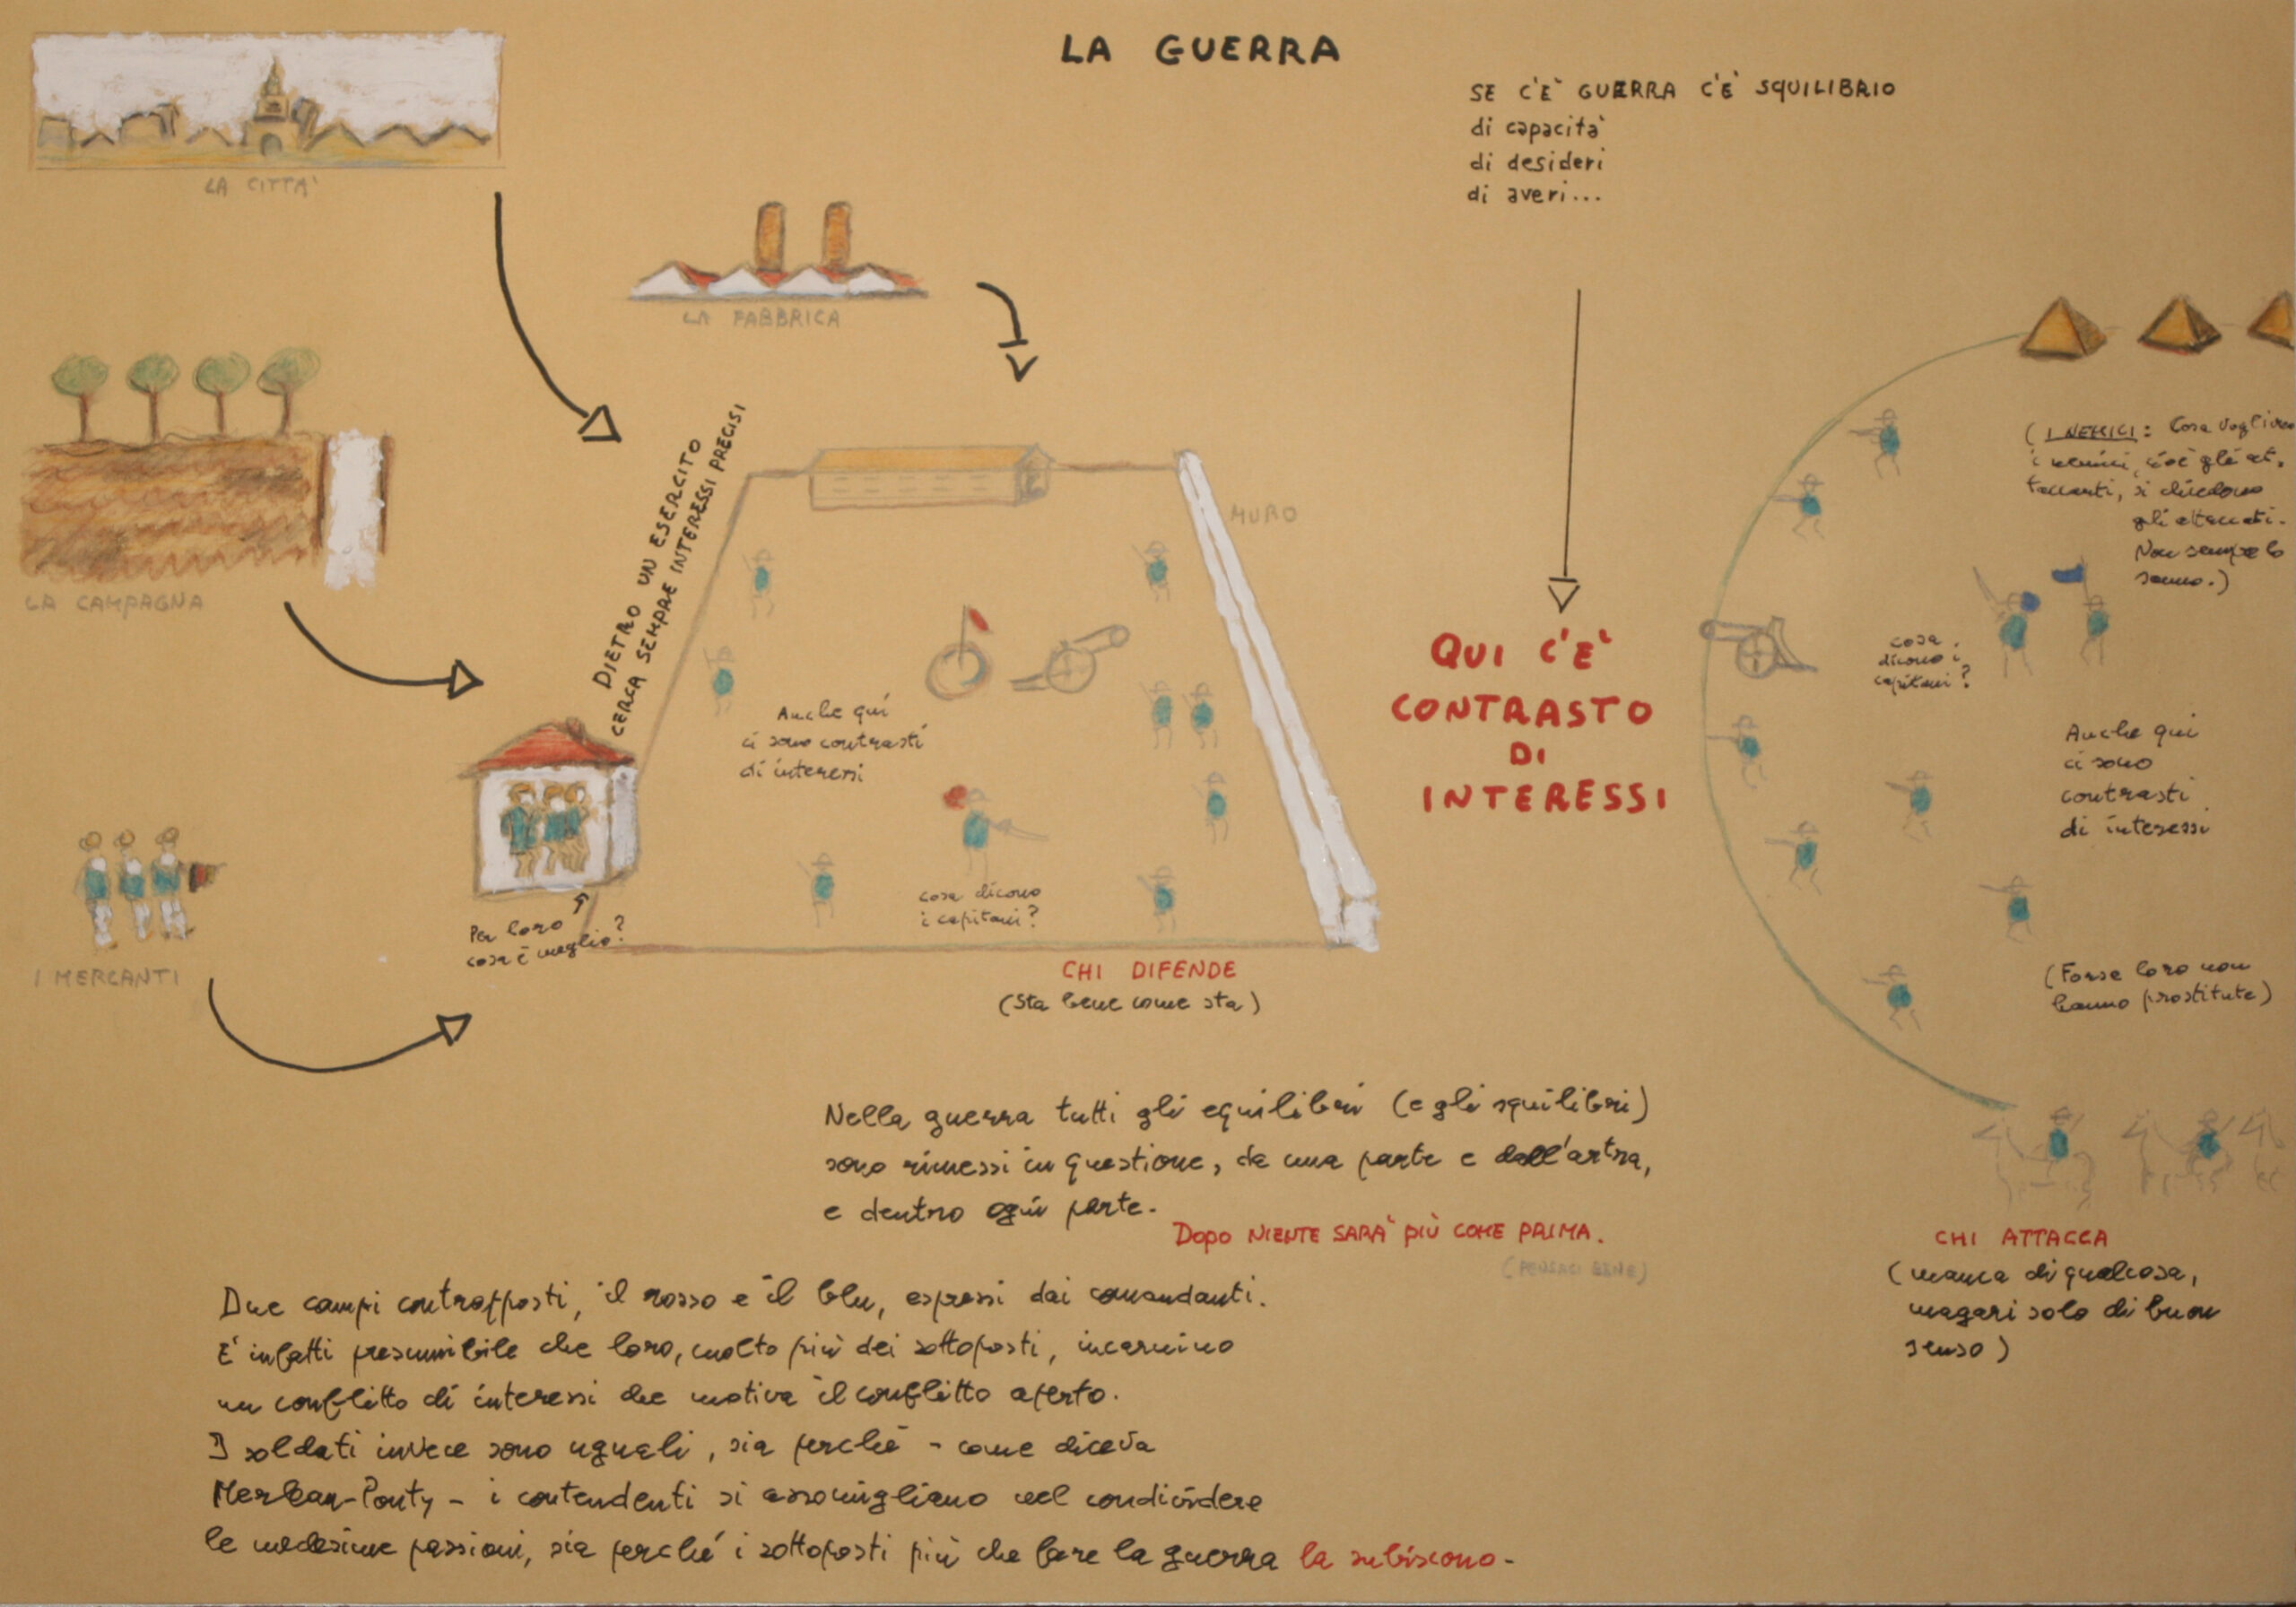 LA GUERRA
SE C'E' GUERRA C'E' SQUILIBRIO
di capacità
di desideri
di averi...
LA CITTA'
LA FABBRICA
LA CAMPAGNA
I MERCANTI
DIETRO UN ESERCITO
CERCA SEMPRE INTERESSI PRECISI
MURO
Anche qui
ci sono contrasti
di interessi
cosa dicono
i capitani?
Per loro
cosa è meglio?
CHI DIFENDE
(Sta bene come sta)
QUI C'E'
CONTRASTO
DI
INTERESSI
(I NEMICI: Cosa vogliono
i nemici, cioè gli at-
taccanti, si chiedono
gli attaccati.
Non sempre lo
sanno.)
cosa
dicono i
capitani?
Anche qui
ci sono
contrasti
di interessi
(Forse loro non
hanno prostitute)
CHI ATTACCA
(manca di qualcosa,
magari solo di buon
senso)
Nella guerra tutti gli equilibri (e gli squilibri)
sono rimessi in questione, da una parte e dall'artra,
e dentro ogni parte.
Dopo NIENTE SARA' PIÙ COME PRIMA.
(PENSACI BENE)
Due campi contrapposti, il rosso e il blu, espressi dai comandanti.
E' infatti presumibile che loro, molto più dei sottoposti, incarnino
un conflitto di interessi che motiva il conflitto aperto.
I soldati invece sono uguali, sia perché - come diceva
Merleau-Ponty - i contendenti si assomigliano nel condividere
le medesime passioni, sia perché i sottoposti più che fare la guerra la subiscono.